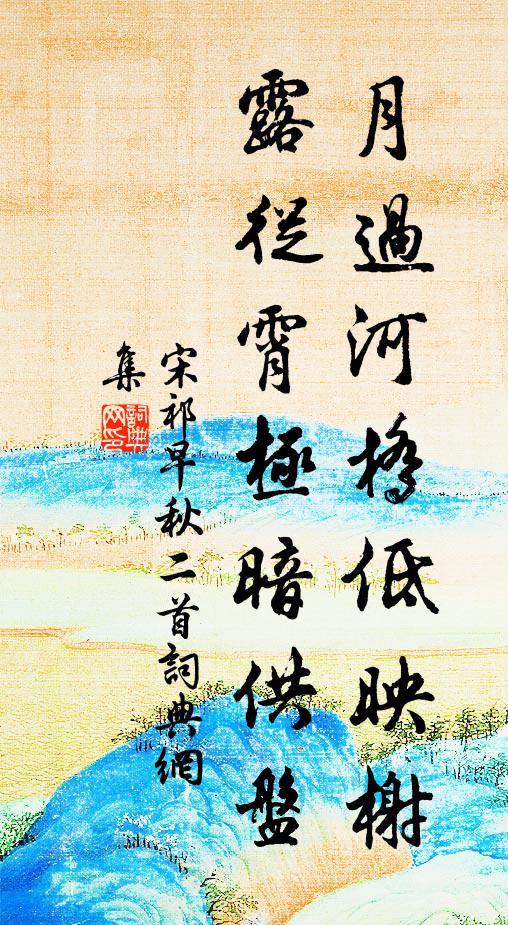 月過河橋低映榭
露從霄極暗供盤
宋祁早秋二首詞典網
集
詞典网印